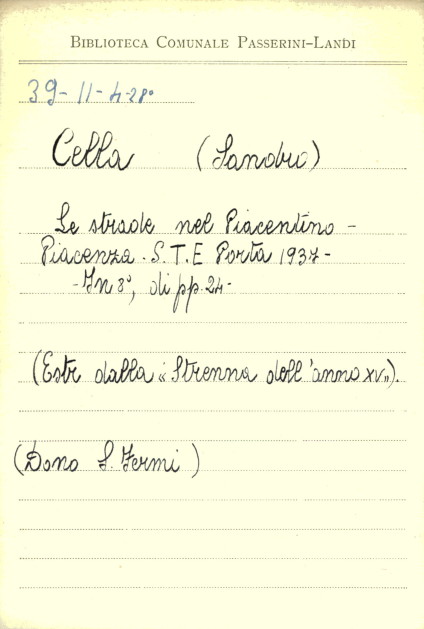 BIBLIOTECA COMUNALE PASSERINI-LANDI
39-11-4-28°
Cella (Sandro)
Le strade nel Piacentino -
Piacenza. S.T.E Porta 1937-
- In 8°, di pp. 24-
(Estr dalla «Strenna dell'anno XV»).
(Dono S. Fermi)